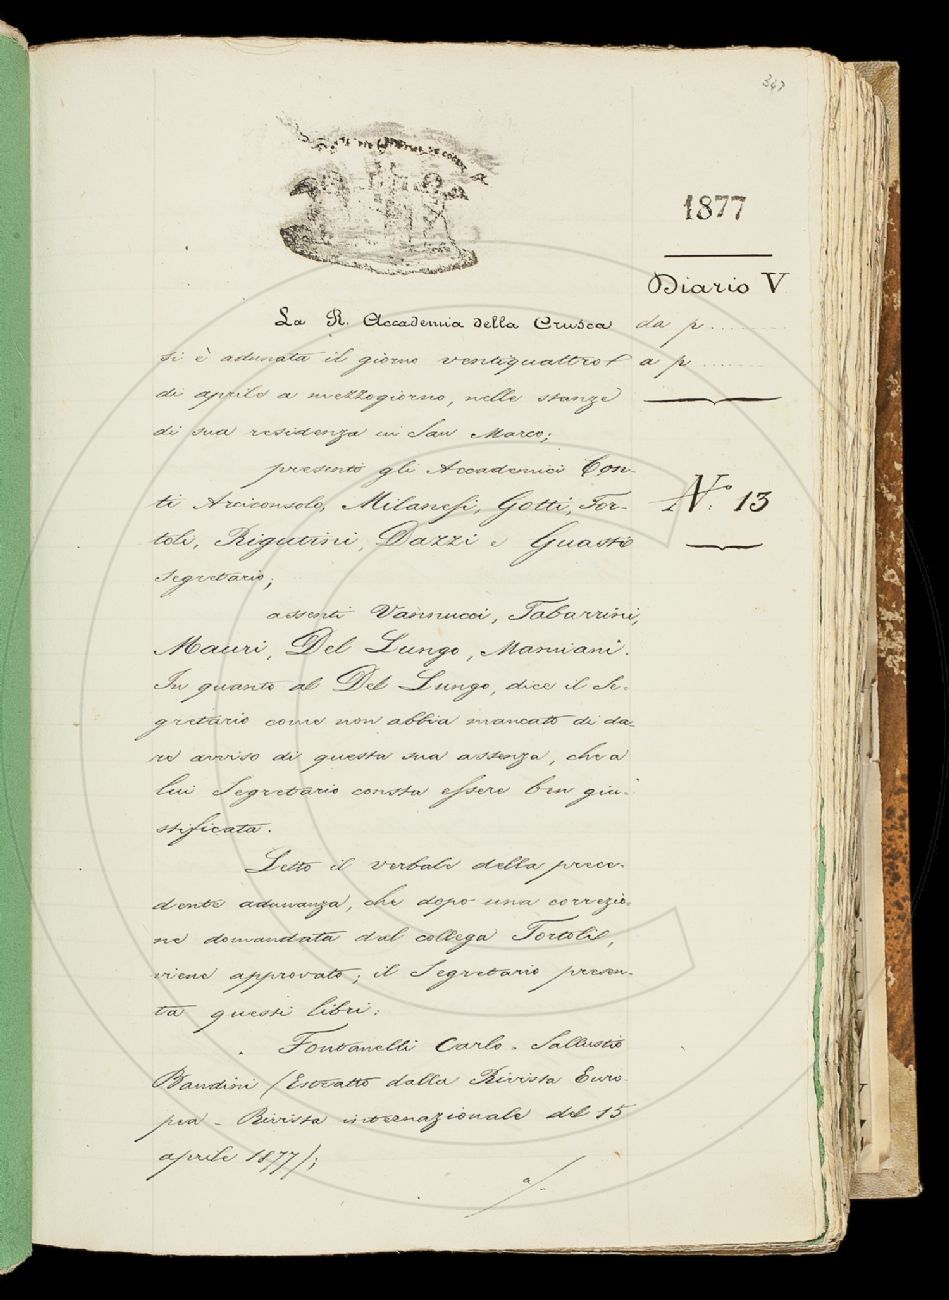 347
1877
Diario V
da p. ........
a p. ........
N.° 13
La R. Accademia della Crusca
si è adunata il giorno ventiquattro
di aprile a mezzogiorno, nelle stanze
di sua residenza in San Marco;
presenti gli Accademici Con-
ti Arciconsolo, Milanesi, Gotti, Tor-
toli, Rigutini, Dazzi e Guasti
segretario;
assenti Vannucci, Tabarrini,
Mauri, Del Lungo, Mamiani.
In quanto al Del Lungo, dice il Se-
gretario come non abbia mancato di da-
re avviso di questa sua assenza, che a
lui Segretario consta essere ben giu-
stificata.
Letto il verbale della prece-
dente adunanza, che dopo una correzio-
ne domandata dal collega Tortoli,
viene approvato; il Segretario presen-
ta questi libri:
Fontanelli Carlo - Sallustio
Bandini (Estratto dalla Rivista Euro-
pea - Rivista internazionale del 15
aprile 1877);